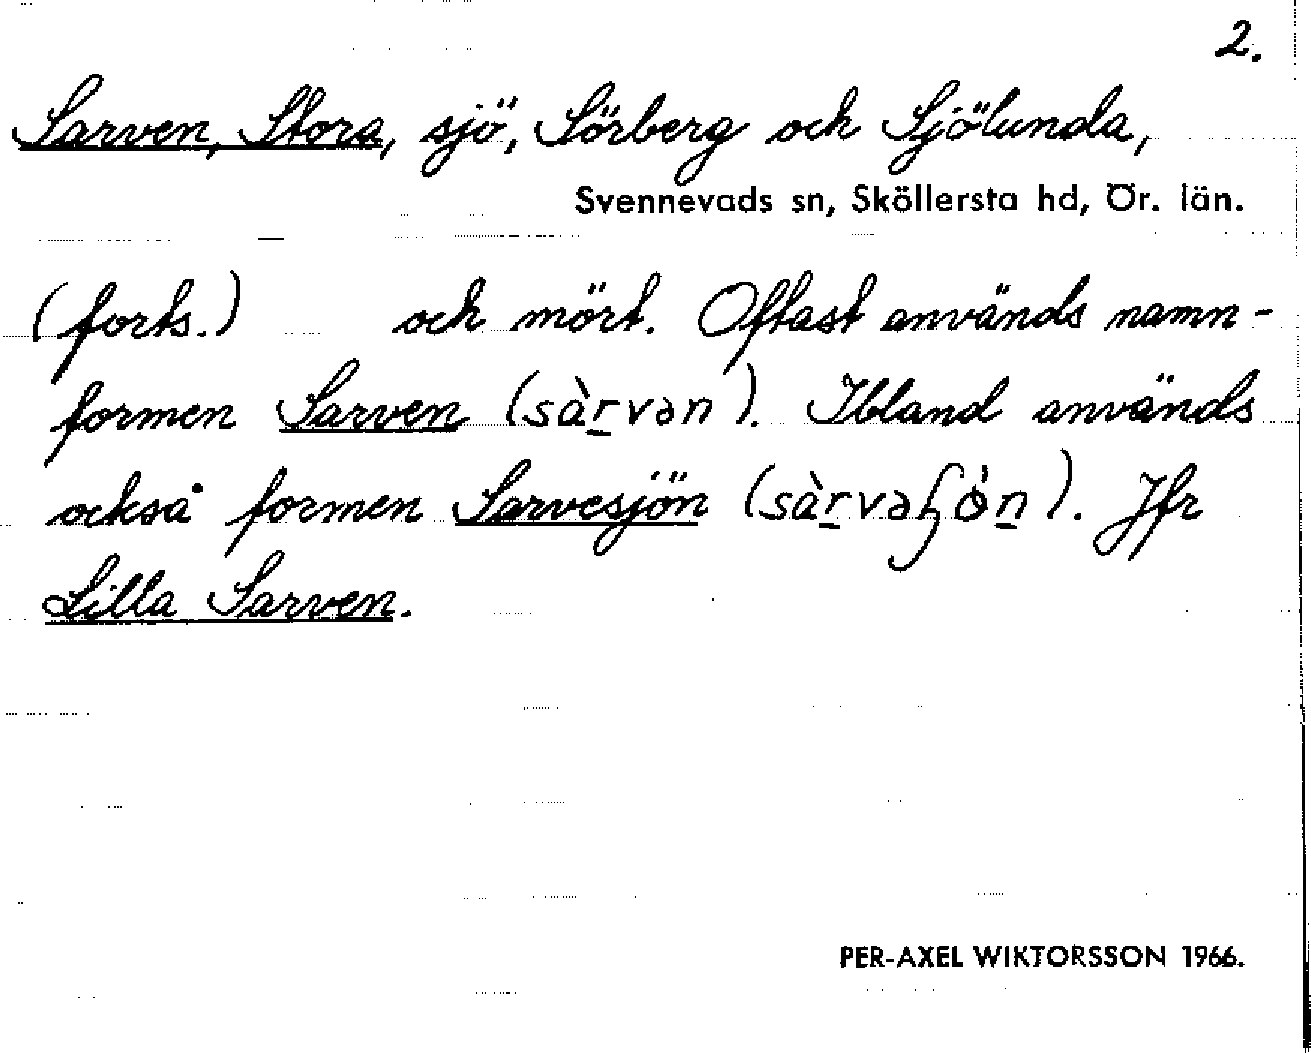 2.
Sarven, Stora, sjö, Sörberg och Sjölunda,
Svennevads sn, Sköllersta hd, Ör. län.
(forts.) och mört. Oftast används namn-
formen Sarven (sàrvən). Ibland används
också formen Sarvesjön (sàrvəɧø̀n). Jfr
Lilla Sarven.
PER-AXEL WIKTORSSON 1966.